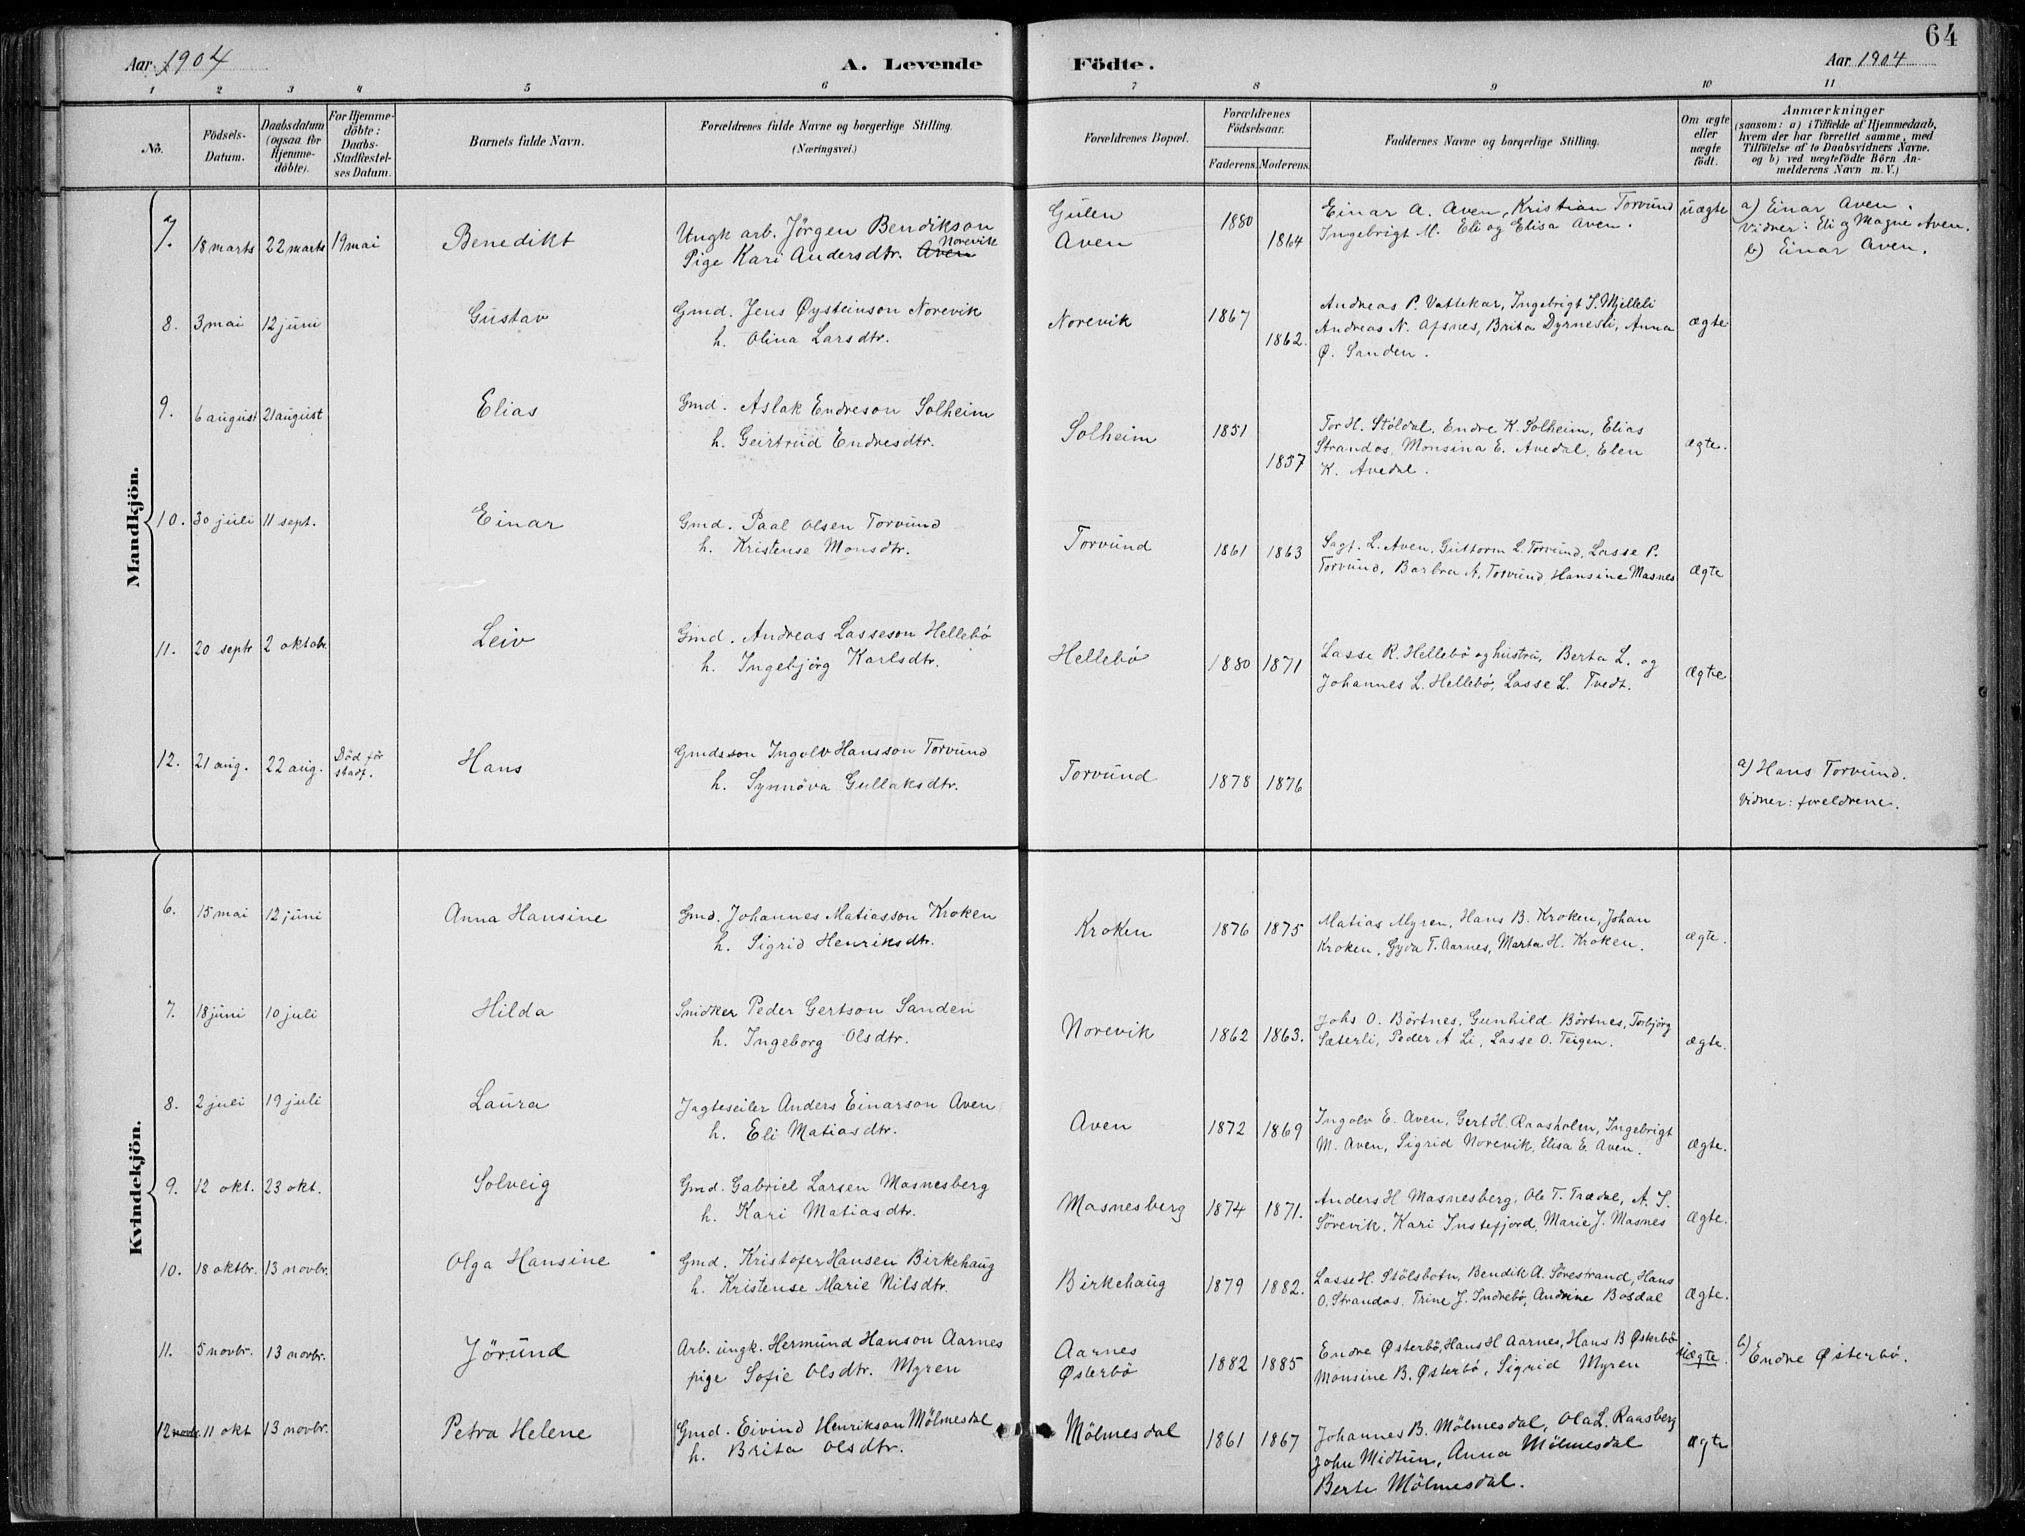 64
Aar 1904
A. Levende
Födte.
Aar 1904
1 2 3 4 5 6 7 8 9 10 11
No.
Födsels-
Datum.
Daabsdatum
(ogsaa for
Hjemme-
döbte).
For Hjemme-
döbte:
Daabs-
Stadfæstel-
ses Datum.
Barnets fulde Navn.
Forældrenes fulde Navne og borgerlige Stilling.
(Næringsvei.)
Forældrenes Bopæl.
Forældrenes
Födselsaar.
Faderens. Moderens.
Faddernes Navne og borgerlige Stilling.
Om ægte
eller
uægte
födt.
Anmærkninger
(saasom: a) i Tilfælde af Hjemmedaab,
hvem der har forrettet samme, med
Tilföielse af to Daabsvidners Navne,
og b) ved uægtefödte Börn An-
melderens Navn m. V.)
Mandkjön.
7. 18 marts 22 marts 19 mai Benedikt
Ungk arb. Jörgen Bendikson
Norevik
Pige Kari Andersdtr. Aven
Gulen
Aven
1880 1864
Einar A. Aven, Kristian Torvund
Ingebrigt M. Eli og Elisa Aven.
uægte
a) Einar Aven.
Vidner: Eli og Magne Aven.
b) Einar Aven.
8. 3 mai 12 juni Gustav
Gmd. Jens Øysteinson Norevik
h. Olina Larsdtr.
Norevik 1867 1862.
Andreas P. Vattekar, Ingebrigt S. Mjelleli
Andreas N. Ofsnes, Brita Dyrnesli, Anna
Ø. Sanden.
ægte
9. 6 august 21 august Elias
Gmd. Aslak Endreson Solheim
h. Geirtrud Endresdtr.
Solheim 1851 1857
Tor H. Stöldal, Endre K. Solheim, Elias
Strandos, Monsina E. Avedal, Elen
K. Avedal.
ægte.
10. 30 juli 11 sept. Einar
Gmd. Paal Olsen Torvund
h. Kristense Monsdtr.
Torvund 1861 1863
Sagt. L. Aven, Guttorm L. Torvund, Lasse P.
Torvund, Barbra A. Torvund Hansine Masnes
ægte
11. 20 septr 2 oktobr. Leiv
Gmd. Andreas Lasseson Hellebö
h. Ingebjörg Karlsdtr.
Hellebö 1880 1871
Lasse R. Hellebö og hustru, Berta L. og
Johannes L. Hellebö, Lasse L. Tvedt.
ægte
12. 21 aug. 22 aug. Död för
stadf.
Hans
Gmdsson Ingolv Hansson Torvund
h. Synnöva Gullaksdtr.
Torvund 1878 1876
a) Hans Torvund.
Vidner: foreldrene.
Kvindekjön.
6. 15 mai 12 juni Anna Hansine
Gmd. Johannes Matiasson Kroken
h. Sigrid Henriksdtr.
Kroken 1876 1875
Matias Myren, Hans B. Kroken, Johan
Kroken, Gyda T. Aarnes, Marta H. Kroken.
ægte.
7. 18 juni 10 juli Hilda
Snidker Peder Gertson Sanden
h. Ingeborg Olsdtr.
Norevik 1862 1863.
Johs O. Börtnes, Gunhild Börtnes, Torbjörg
Sæterli, Peder A Li, Lasse O. Teigen.
ægte.
8. 2 juli 19 juli Laura
Jagteseiler Anders Einarson Aven
h. Eli Matiasdtr.
Aven 1872 1869
Ingolv E. Aven, Gert H. Raasholm, Ingebrigt
M. Aven, Sigrid Norevik, Elisa E. Aven.
ægte.
9. 12 okt. 23 okt. Solveig
Gmd. Gabriel Larsen Masnesberg
h. Kari Matiasdtr.
Masnesberg 1874 1871.
Anders H Masnesberg, Ole T. Trædal, A. S.
Sörevik, Kari Instefjord, Marie J. Masnes
ægte.
10. 18 oktbr. 13 novbr. Olga Hansine
Gmd. Kristofer Hansen Birkehaug
h. Kristense Marie Nilsdtr.
Birkehaug 1879 1882.
Lasse H Stölsbotn, Bendik A. Sörestrand, Hans
O. Strandos, Trine J. Indrebö, Andrine Bosdal
ægte.
11. 5 novbr. 13 novbr. Jörund
Arb. ungk. Hermund Hanson Aarnes
pige Sofie Olsdtr. Myren
Aarnes
Østerbö
1882 1885
Endre Østerbö, Hans H Aarnes, Hans B Østerbö
Monsine B. Østerbö, Sigrid Myren
uægte.
b) Endre Østerbö.
12 novbr. 11 okt 13 novbr. Petra Helene
Gmd. Eivind Henrikson Mölmesdal
h. Brita Olsdtr.
Mölmesdal 1861 1867
Johannes B. Mölmesdal, Ola L. Raasberg
John Midtun, Anna Mölmesdal
Berte Mölmesdal.
ægte